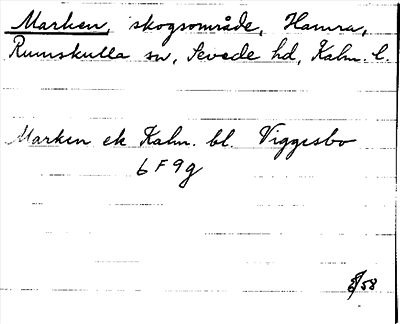 Marken, skogsområde, Hamra,
Rumskulla sn, Sevede hd, Kalm. l.
Marken ek Kalm. bl. Viggesbo
6 F 9g
/58